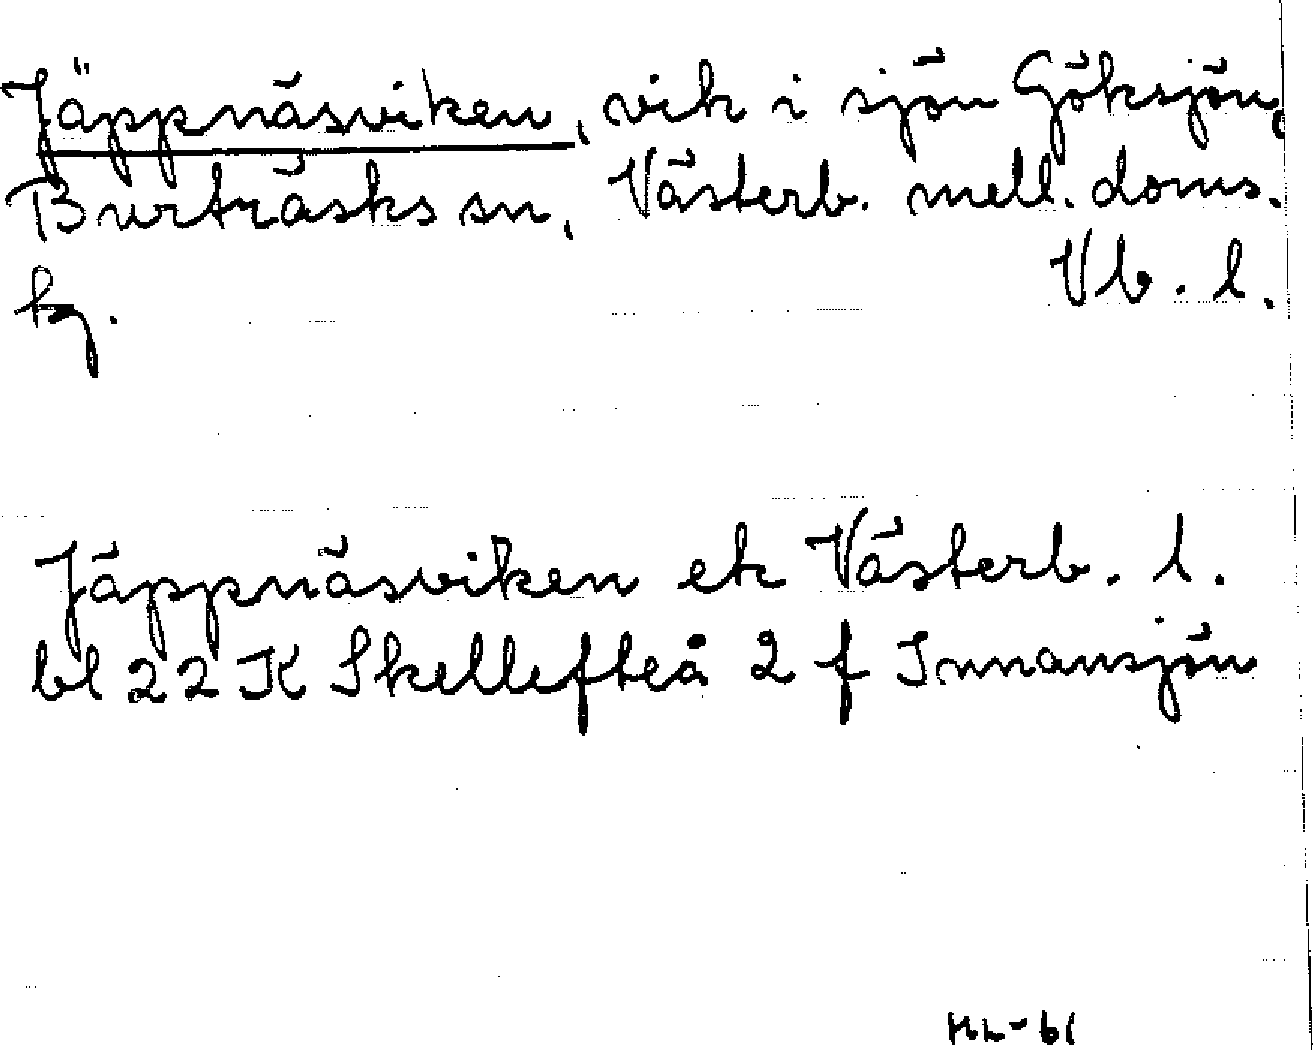 Jäppnäsviken, vik i sjön Göksjön,
Burträsks sn, Västerb. mell. doms.
hg. Vb. l.
Jäppnäsviken ek Västerb. l.
bl 22 K Skellefteå 2 f Innansjön